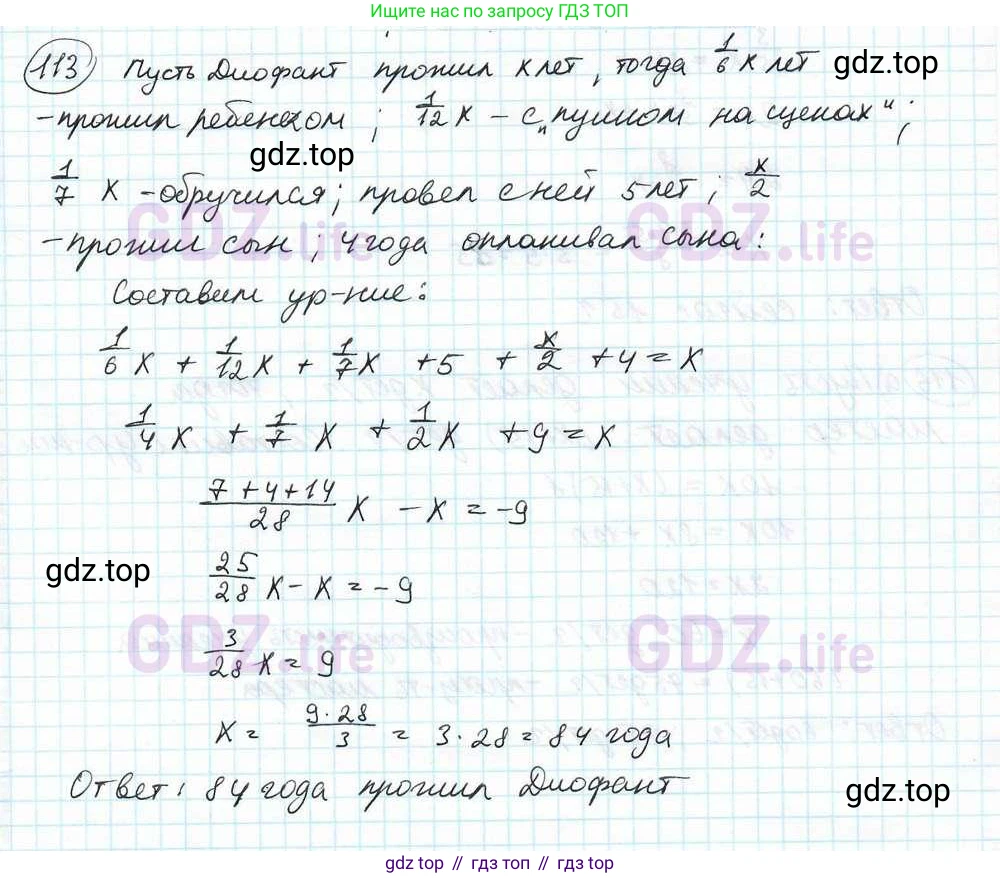 Ищите по запросу ГДЗ ТОП
113 Пусть Диофант прожил x лет, тогда 1/6 x лет
- прожил ребенком; 1/12 x - с „пушком на щеках";
gdz.top
1/7 x - обручился; провел с ней 5 лет; x/2
GDZ.life GDZ.life
- прожил сын; 4 года оплакивал сына:
Составим ур-ние:
1/6 x + 1/12 x + 1/7 x + 5 + x/2 + 4 = x
1/4 x + 1/7 x + 1/2 x + 9 = x
(7+4+14)/28 x - x = -9
gdz.top
25/28 x - x = -9
GDZ.life GDZ.life
3/28 x = 9
x = (9·28)/3 = 3·28 = 84 года
Ответ: 84 года прожил Диофант
gdz.top
gdz.top // гдз топ // gdz.top